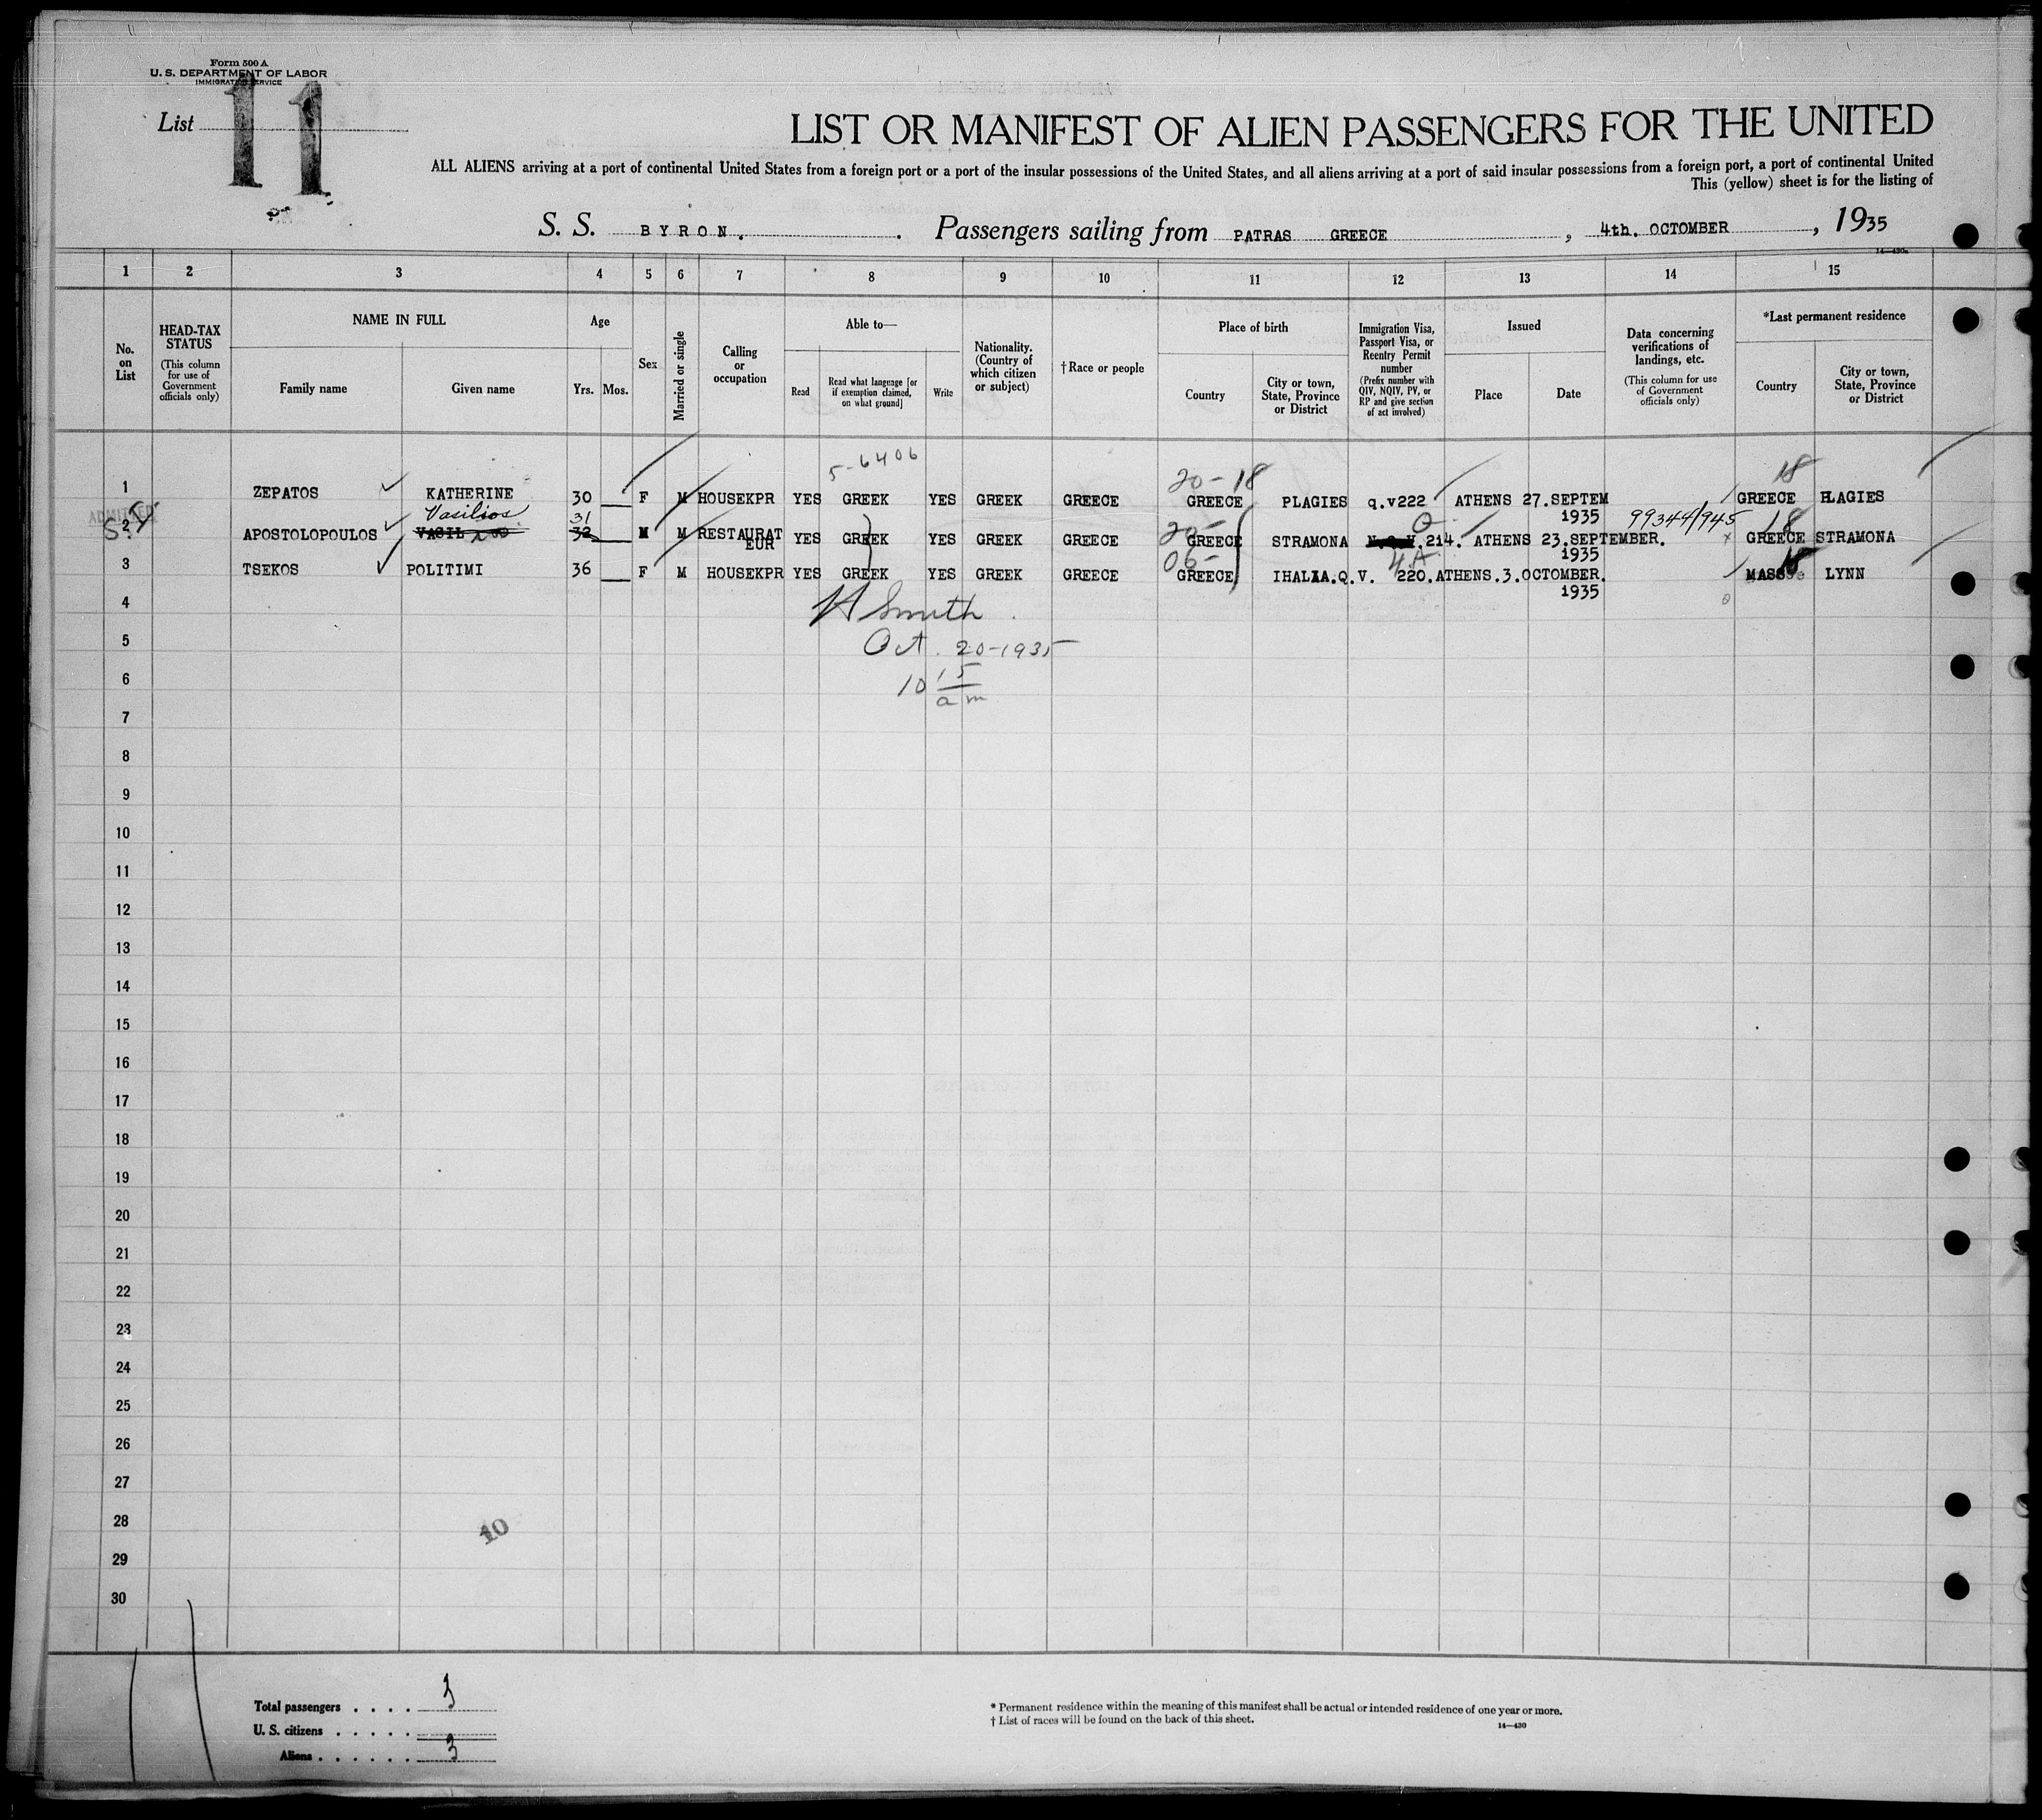 Form 500 A
U. S. DEPARTMENT OF LABOR
IMMIGRATION SERVICE
List 11
LIST OR MANIFEST OF ALIEN PASSENGERS FOR THE UNITED
ALL ALIENS arriving at a port of continental United States from a foreign port or a port of the insular possessions of the United States, and all aliens arriving at a port of said insular possessions from a foreign port, a port of continental United
This (yellow) sheet is for the listing of
S. S. BYRON. . Passengers sailing from PATRAS GREECE , 4th. OCTOMBER , 1935
1 2 3 4 5 6 7 8 9 10 11 12 13 14 15
No. on List
HEAD-TAX STATUS
(This column for use of Government officials only)
NAME IN FULL
Family name
Given name
Age
Yrs.
Mos.
Sex
Married or single
Calling or occupation
Able to—
Read
Read what language [or if exemption claimed, on what ground]
Write
Nationality. (Country of which citizen or subject)
†Race or people
Place of birth
Country
City or town, State, Province or District
Immigration Visa, Passport Visa, or Reentry Permit number
(Prefix number with QIV, NQIV, PV, or RP and give section of act involved)
Issued
Place
Date
Data concerning verifications of landings, etc.
(This column for use of Government officials only)
*Last permanent residence
Country
City or town, State, Province or District
5-6406
20-18
18
1 ZEPATOS KATHERINE 30 F M HOUSEKPR YES GREEK YES GREEK GREECE GREECE PLAGIES q.v222 ATHENS 27.SEPTEM GREECE PLAGIES
1935
ADMITTED
Vasilios
31
20-
Q
99344/945
18
2 APOSTOLOPOULOS VASIL 32 M M RESTAURAT YES GREEK YES GREEK GREECE GREECE STRAMONA .214. ATHENS 23.SEPTEMBER. GREECE STRAMONA
EUR
1935
06-
4A
18
3 TSEKOS POLITIMI 36 F M HOUSEKPR YES GREEK YES GREEK GREECE GREECE IHALIA.Q.V. 220.ATHENS.3.OCTOMBER. MASS LYNN
1935
4
H Smith
5
Oct. 20-1935
6
10 15
am
7
8
9
10
11
12
13
14
15
16
17
18
19
20
21
22
23
24
25
26
27
28
10
29
30
Total passengers . . . . 3
U. S. citizens . . . . .
Aliens . . . . . . 3
* Permanent residence within the meaning of this manifest shall be actual or intended residence of one year or more.
† List of races will be found on the back of this sheet.
14—430